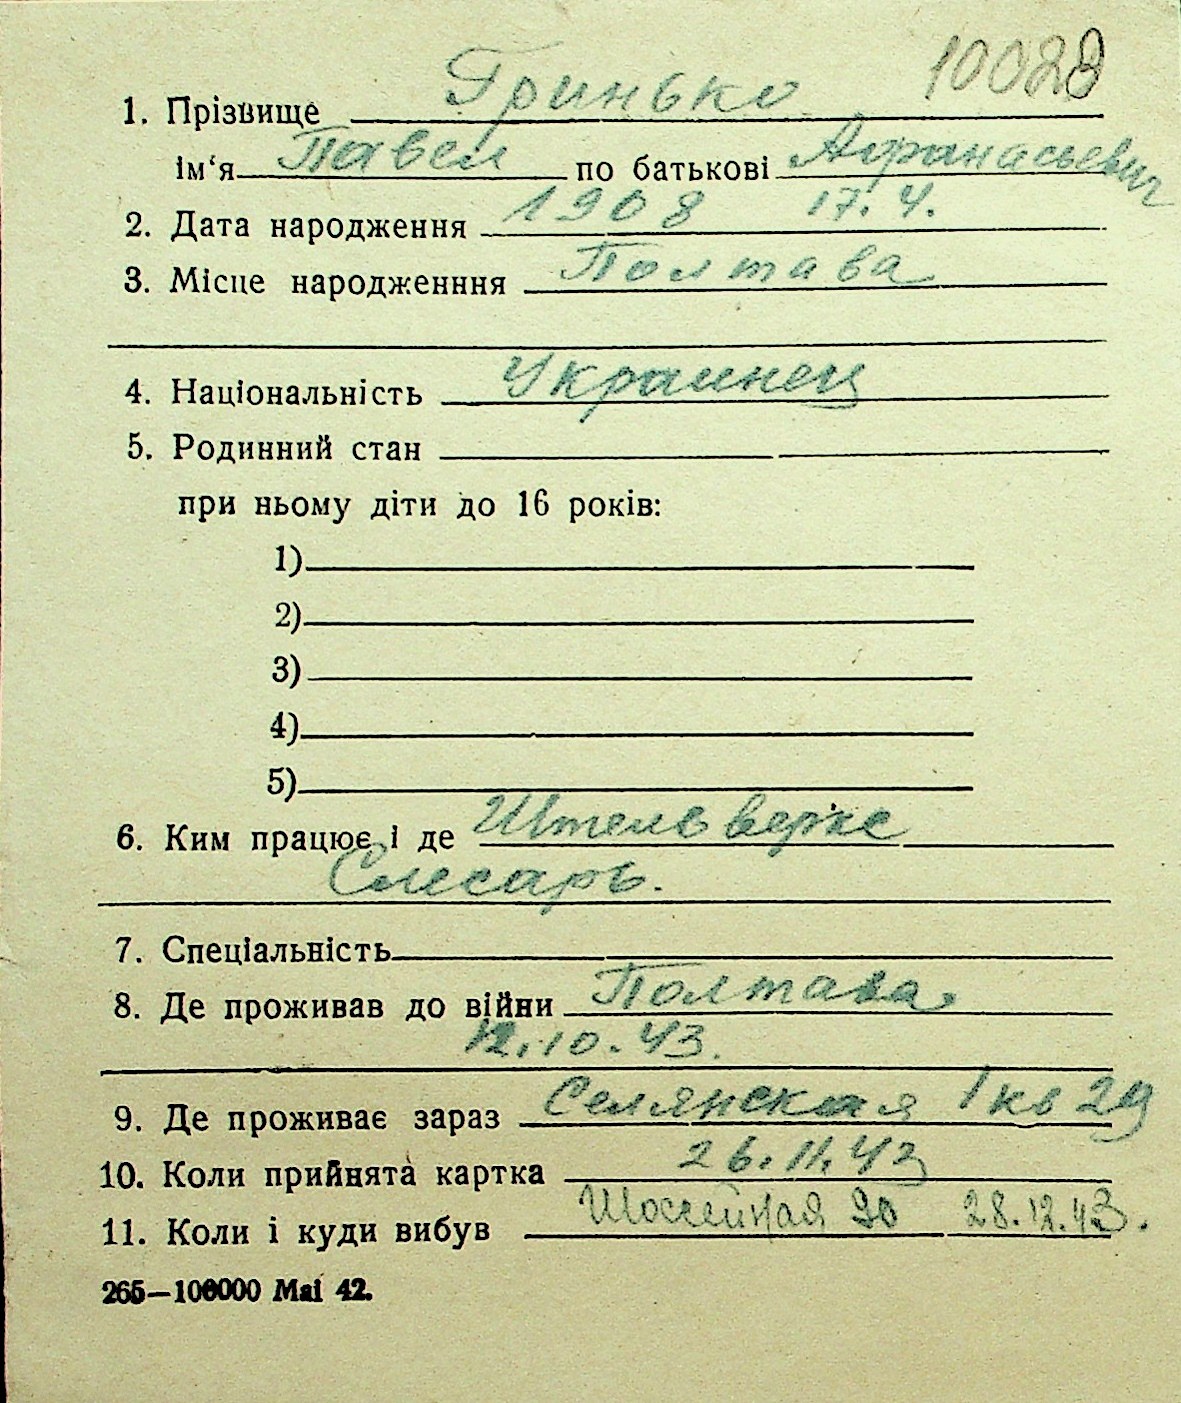 10028
1. Прізвище Гринько
ім‘я Павел по батькові Афанасьевич
2. Дата народження 1908 17.4.
3. Місце народженння Полтава
4. Національність Украинец
5. Родинний стан
при ньому діти до 16 років:
1)
2)
3)
4)
5)
6. Ким працює і де Штельверке
Слесарь.
7. Спеціальність
8. Де проживав до війни Полтава
12.10.43.
9. Де проживає зараз Селянская 1 кв 29
10. Коли прийнята картка 26.11.43
11. Коли і куди вибув Шоссейная 90 28.12.43.
265—100000 Mai 42.